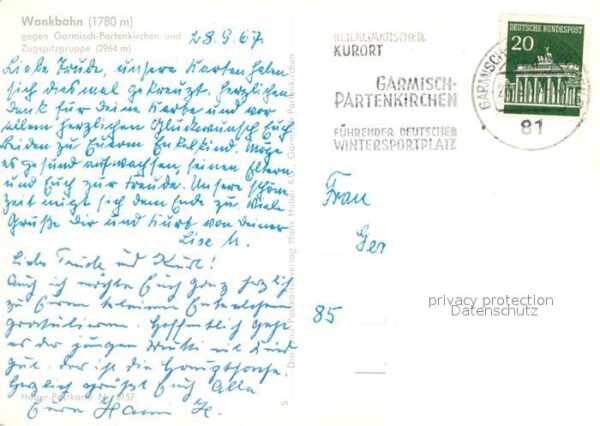 Wankbahn (1780 m)
gegen Garmisch-Partenkirchen und
Zugspitzgruppe (2964 m)
28.9.67.
Liebe Trude, unsere Karten haben
sich diesmal gekreuzt. Herzlichen
Dank für Deine Karte und vor
allem herzlichen Glückwunsch Euch
Beiden zu Eurem Enkelkind. Möge
es gesund aufwachsen, seinen Eltern
und Euch zur Freude. Unsere schöne
Zeit neigt sich dem Ende zu. Viele
Grüße Dir und Kurt von Deiner
Lise M.
Liebe Trude und Kurt!
Auch ich möchte Euch ganz herzlich
zu Eurem kleinen Enkelchen
gratulieren. Hoffentlich geht
es der jungen Mutti mit Kind
gut. Das ist die Hauptsache.
Herzlich grüßt Euch Alle
Eure Hanni H.
Huber-Postkarte Nr. 8157
HEILKLIMATISCHER
KURORT
GARMISCH-
PARTENKIRCHEN
FÜHRENDER DEUTSCHER
WINTERSPORTPLATZ
DEUTSCHE BUNDESPOST
20
GARMISCH
81
Frau
Ger
85
privacy protection
Datenschutz